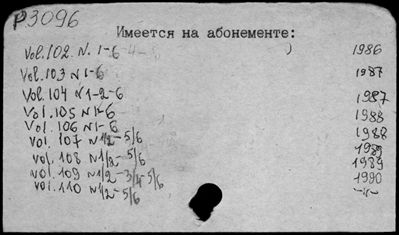 P3096
Имеется на абонементе:
Vol. 102. N. 1-6 ) 1986
Vol. 103 N 1-6 1987
Vol. 104 N 1-2-6 1987
Vol. 105 N 1-6 1988
Vol. 106 N 1-6 1988
Vol. 107 N 1/2-5/6 1989
Vol. 108 N 1/2-5/6 1989
Vol. 109 N 1/2-3/4-5/6 1990
Vol. 110 N 1/2-5/6 -"-